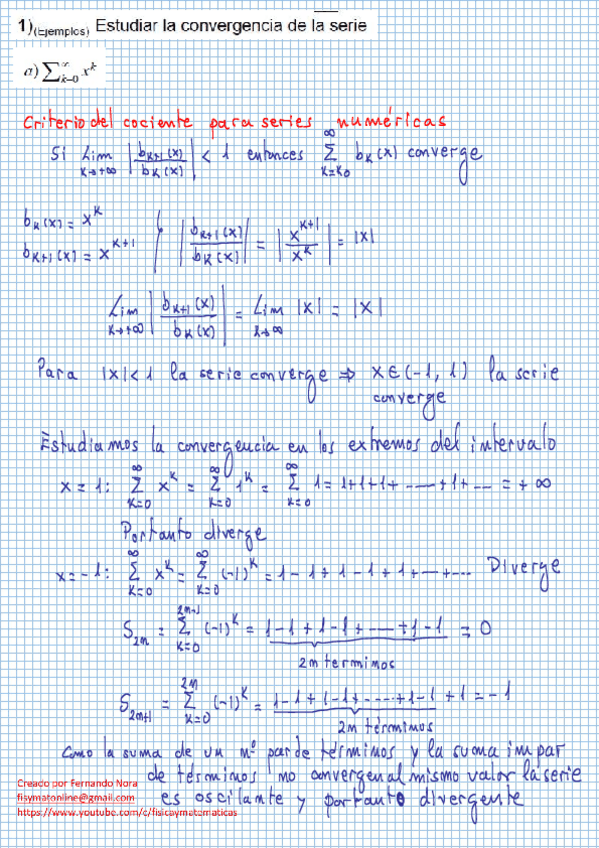 1)(Ejemplos) Estudiar la convergencia de la serie
a) ∑_{k=0}^{∞} x^k
Criterio del cociente para series numéricas
Si Lim_{k→+∞} |b_{k+1}(x)/b_k(x)| < 1 entonces ∑_{k=k_0}^{∞} b_k(x) converge
b_k(x) = x^k
b_{k+1}(x) = x^{k+1} } |b_{k+1}(x)/b_k(x)| = |x^{k+1}/x^k| = |x|
Lim_{k→+∞} |b_{k+1}(x)/b_k(x)| = Lim_{k→∞} |x| = |x|
Para |x| < 1 la serie converge ⇒ x ∈ (-1, 1) la serie
converge
Estudiamos la convergencia en los extremos del intervalo
x = 1: ∑_{k=0}^{∞} x^k = ∑_{k=0}^{∞} 1^k = ∑_{k=0}^{∞} 1 = 1+1+1+ ---- +1+ --- = +∞
Portanto diverge
x = -1: ∑_{k=0}^{∞} x^k = ∑_{k=0}^{∞} (-1)^k = 1 - 1 + 1 - 1 + 1 + --- + --- Diverge
S_{2m} = ∑_{k=0}^{2m-1} (-1)^k = 1 - 1 + 1 - 1 + ---- + 1 - 1 = 0
2m terminos
S_{2m+1} = ∑_{k=0}^{2m} (-1)^k = 1 - 1 + 1 - 1 + ----- + 1 - 1 + 1 = -1
2m términos
Como la suma de un nº par de términos y la suma impar
de términos no convergen al mismo valor la serie
es oscilante y portanto divergente
Creado por Fernando Nora
fisymatonline@gmail.com
https://www.youtube.com/c/fisicaymatematicas